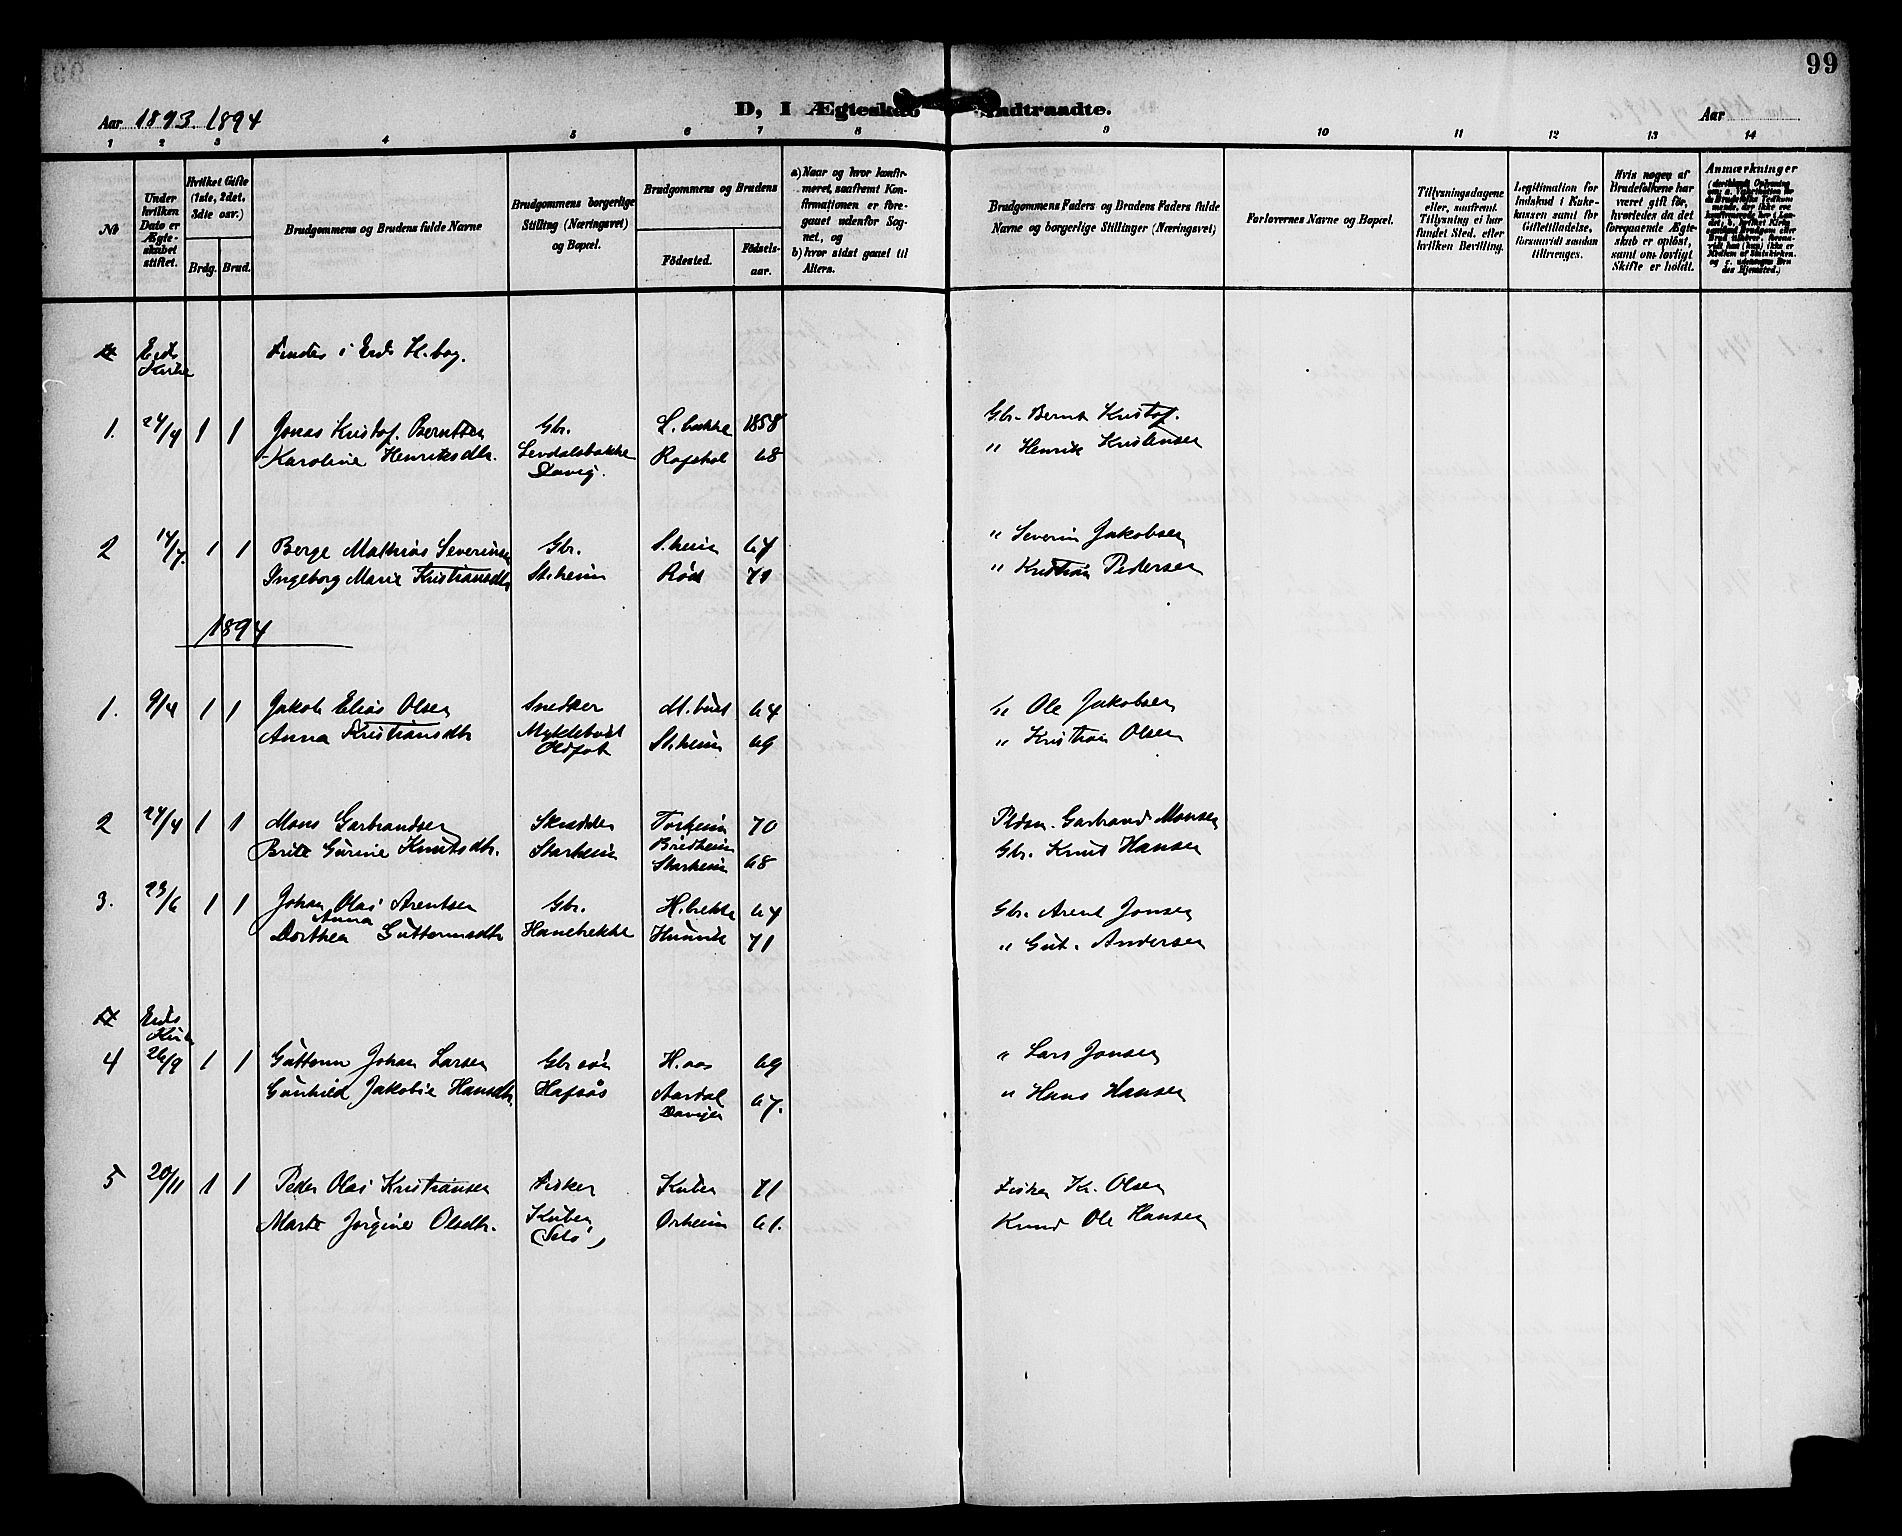 99
D, I Ægteskab Indtraadte.
Aar 1893. 1894
Aar
1 2 3 4 5 6 7 8 9 10 11 12 13 14
№
Under hvilken Dato er Ægteskabet stiftet.
Hvilket Gifte (1ste, 2det, 3die osv.)
Brdg. Brud.
Brudgommens og Brudens fulde Navne
Brudgommens borgerlige Stilling (Næringsvei) og Bopæl.
Brudgommens og Brudens
Fødested. Fødselsaar.
a) Naar og hvor konfirmeret, saafremt Konfirmationen er foregaaet udenfor Sognet, og
b) hvor sidst gaaet til Alters.
Brudgommens Faders og Brudens Faders fulde Navne og borgerlige Stillinger (Næringsvei)
Forlovernes Navne og Bopæl.
Tillysningsdagene eller, saafremt Tillysning ei har fundet Sted, efter hvilken Bevilling.
Legitimation for Indskud i Enkekassen samt for Giftetilladelse, forsaavidt saadan tiltrænges.
Hvis nogen af Brudefolkene har været gift før, hvorledes da det foregaaende Ægteskab er opløst, samt om lovligt Skifte er holdt.
Anmærkninger
Eids Kirke Findes i Eids K.bog.
1. 24/4 1 1 Jonas Kristof. Berntsen Gbr. L.bakke 1858 Gbr. Bernt Kristof.
Karoline Henriksdtr. Levdalsbakke Rafshol 68 " Henrik Kristensen
Davig.
2 14/7. 1 1 Berge Mathias Severinsen Gbr. S.heim 67 " Severin Jakobsen
Ingeborg Marie Kristiansdtr St.heim Rød 71 " Kristian Pedersen
1894
1. 9/4 1 1 Jakob Elias Olsen Snedker M.bust 64 " Ole Jakobsen
Anna Kristiansdtr Myklebust St.heim 69 " Kristian Olsen
2 24/4 1 1 Mons Garbrandsen Skrædder Torheim 70 Garbrand Monsen
Brite Gurine Knutsdtr. Starheim Bridheim Gbr. Knut Hansen
Starheim 68
3. 23/6 1 1 Johan Olai Arentsen Gbr. H.brekke 64 Gbr. Arent Jonsen
Anna
Dorthea Guttormsdtr Hanebrekke Hunvik 71 " Gut. Andersen
Eids Kirke
4 26/9 1 1 Guttorm Johan Larsen Gbr søn H.aas 69 " Lars Jonsen
Gunhild Jakobie Hansdtr. Hafsås Aardal 67. " Hans Hansen
Davigen
5 20/11 1 1 Peder Olai Kristiansen Fisker Kuben 71 Fisker Kr. Olsen
Marte Jorgine Olsdtr. Kuben Orheim 61. Ole Hansen